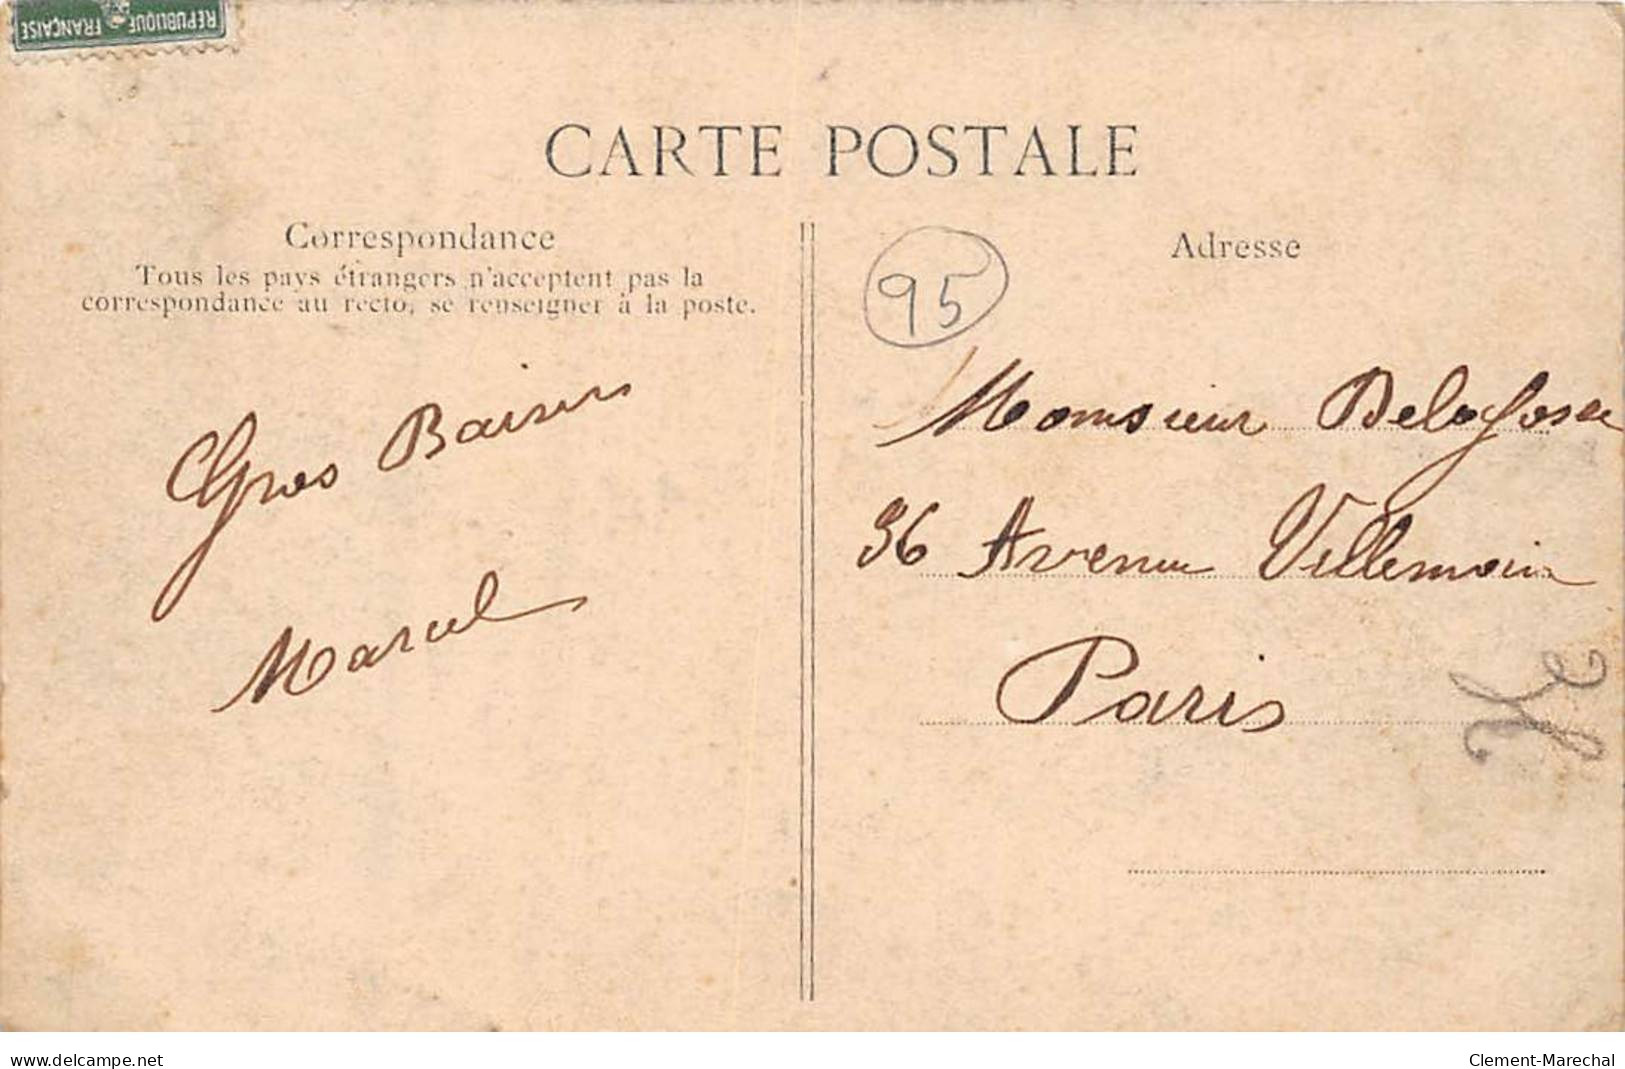 REPUBLIQUE FRANÇAISE
CARTE POSTALE
Correspondance
Tous les pays étrangers n'acceptent pas la
correspondance au recto, se renseigner à la poste.
Gros Baisers
Marcel
Adresse
95
Monsieur Delafosse
36 Avenue Villemain
Paris
www.delcampe.net
Clement-Marechal